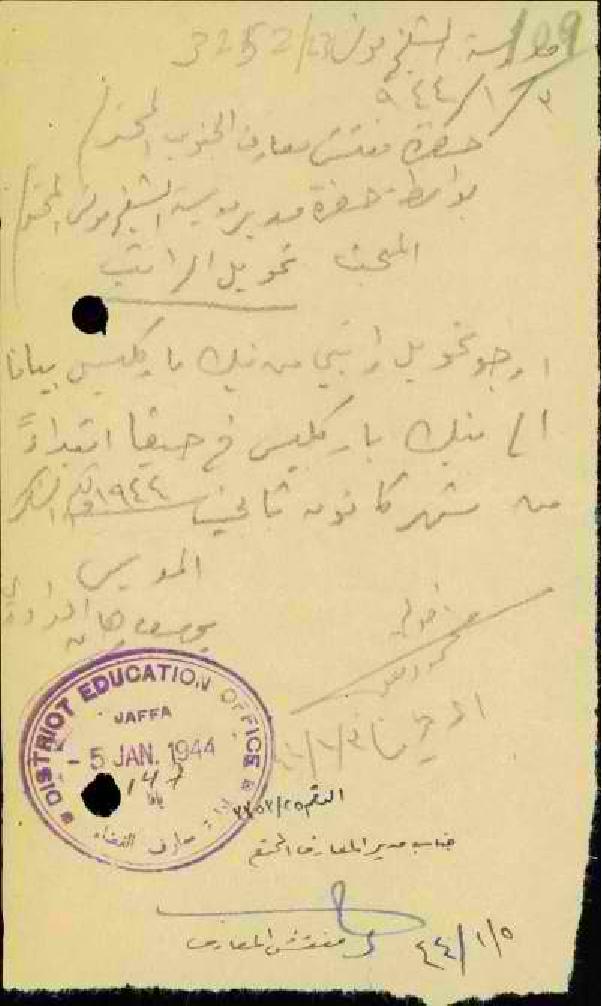 مدرسة الشيخ مونس 3252/23
٣/١/٩٤٤
حضرة مفتش معارف الجنوب المحترم
بواسطة حضرة مدير مدرسة الشيخ مونس المحترم
المبحث تحويل الراتب
ارجو تحويل راتبي من بنك باركليس بيافا
الى بنك باركليس في حيفا ابتداءً
من شهر كانون ثاني ١٩٤٤
المدرس
DISTRICT EDUCATION OFFICE
JAFFA
- 5 JAN. 1944
147
يافا
الرقم
جناب مدير المعارف المحترم
مفتش المعارف
٤٤/١/٥